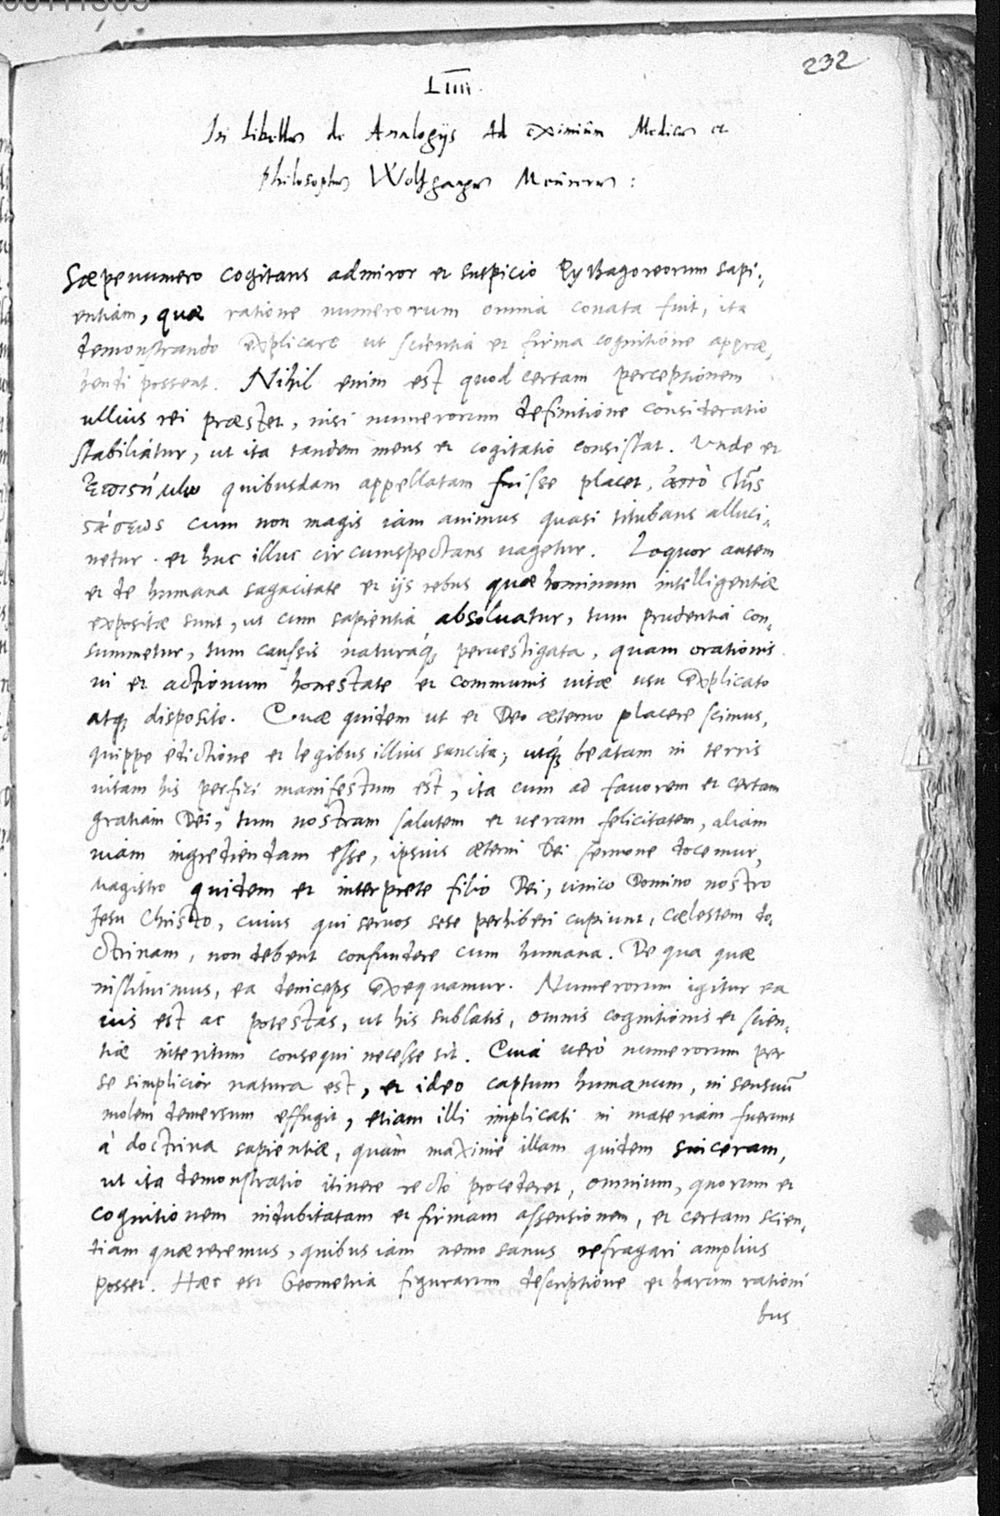 232
LIIII.
In libellum de Analogijs Ad eximium Medicum et
philosophum Wolfgangum Meurerum :
Sæpenumero cogitans admiror et suspicio Pythagoreorum sapi-
entiam, quæ ratione numerorum omnia conata fuit, ita
demonstrando explicare ut scientia et firma cognitione appræ-
hendi possent. Nihil enim est quod certam perceptionem
ullius rei præstet, nisi numerorum definitione consideratio
stabiliatur, ut ita tandem mens et cogitatio consistat. Unde et
ἐπιστήμην quibusdam appellatam fuisse placet, ἀπὸ τῆς
στάσεως cum non magis iam animus quasi titubans alluci-
netur et huc illuc circumspectans uagetur. Loquor autem
et de humana sagacitate et ijs rebus quæ hominum intelligentiæ
expositæ sunt, ut cum sapientia absoluatur, tum prudentia con-
summetur, tum caussis naturáq; peruestigata, quam orationis
ui et actionum honestate et communis uitæ usu explicato
atq; disposito. Quæ quidem ut et Deo æterno placere scimus,
quippe edictione et legibus illius sancita; utq; beatam in terris
uitam his perfici manifestum est, ita cum ad fauorem et certam
gratiam Dei, tum nostram salutem et ueram felicitatem, aliam
uiam ingrediendam esse, ipsius æterni Dei sermone docemur,
Magistro quidem et interprete filio Dei, unico Domino nostro
Jesu Christo, cuius qui seruos sese perhiberi cupiunt, cælestem do-
ctrinam, non debent confundere cum humana. De qua quæ
instituimus, ea deniceps exequamur. Numerorum igitur ea
uis est ac potestas, ut his sublatis, omnis cognitionis et scien-
tiæ interitum consequi necesse sit. Quia uerò numerorum per
se simplicior natura est, et ideo captum humanum, in sensuum
molem demersum effugit, etiam illi implicati in materiam fuerunt
à doctrina sapientiæ, quàm maximè illam quidem sinceram,
ut ita demonstratio itinere recto procederet, omnium, quorum et
cognitionem indubitatam et firmam assensionem, et certam scien-
tiam quæreremus, quibus iam nemo sanus refragari amplius
posset. Hæc est Geometria figurarum descriptione et harum rationi
bus